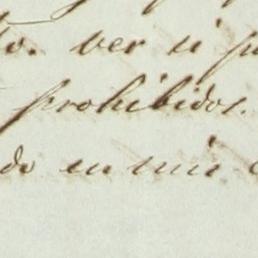 to. ver si pu
prohibidos.
do en mis